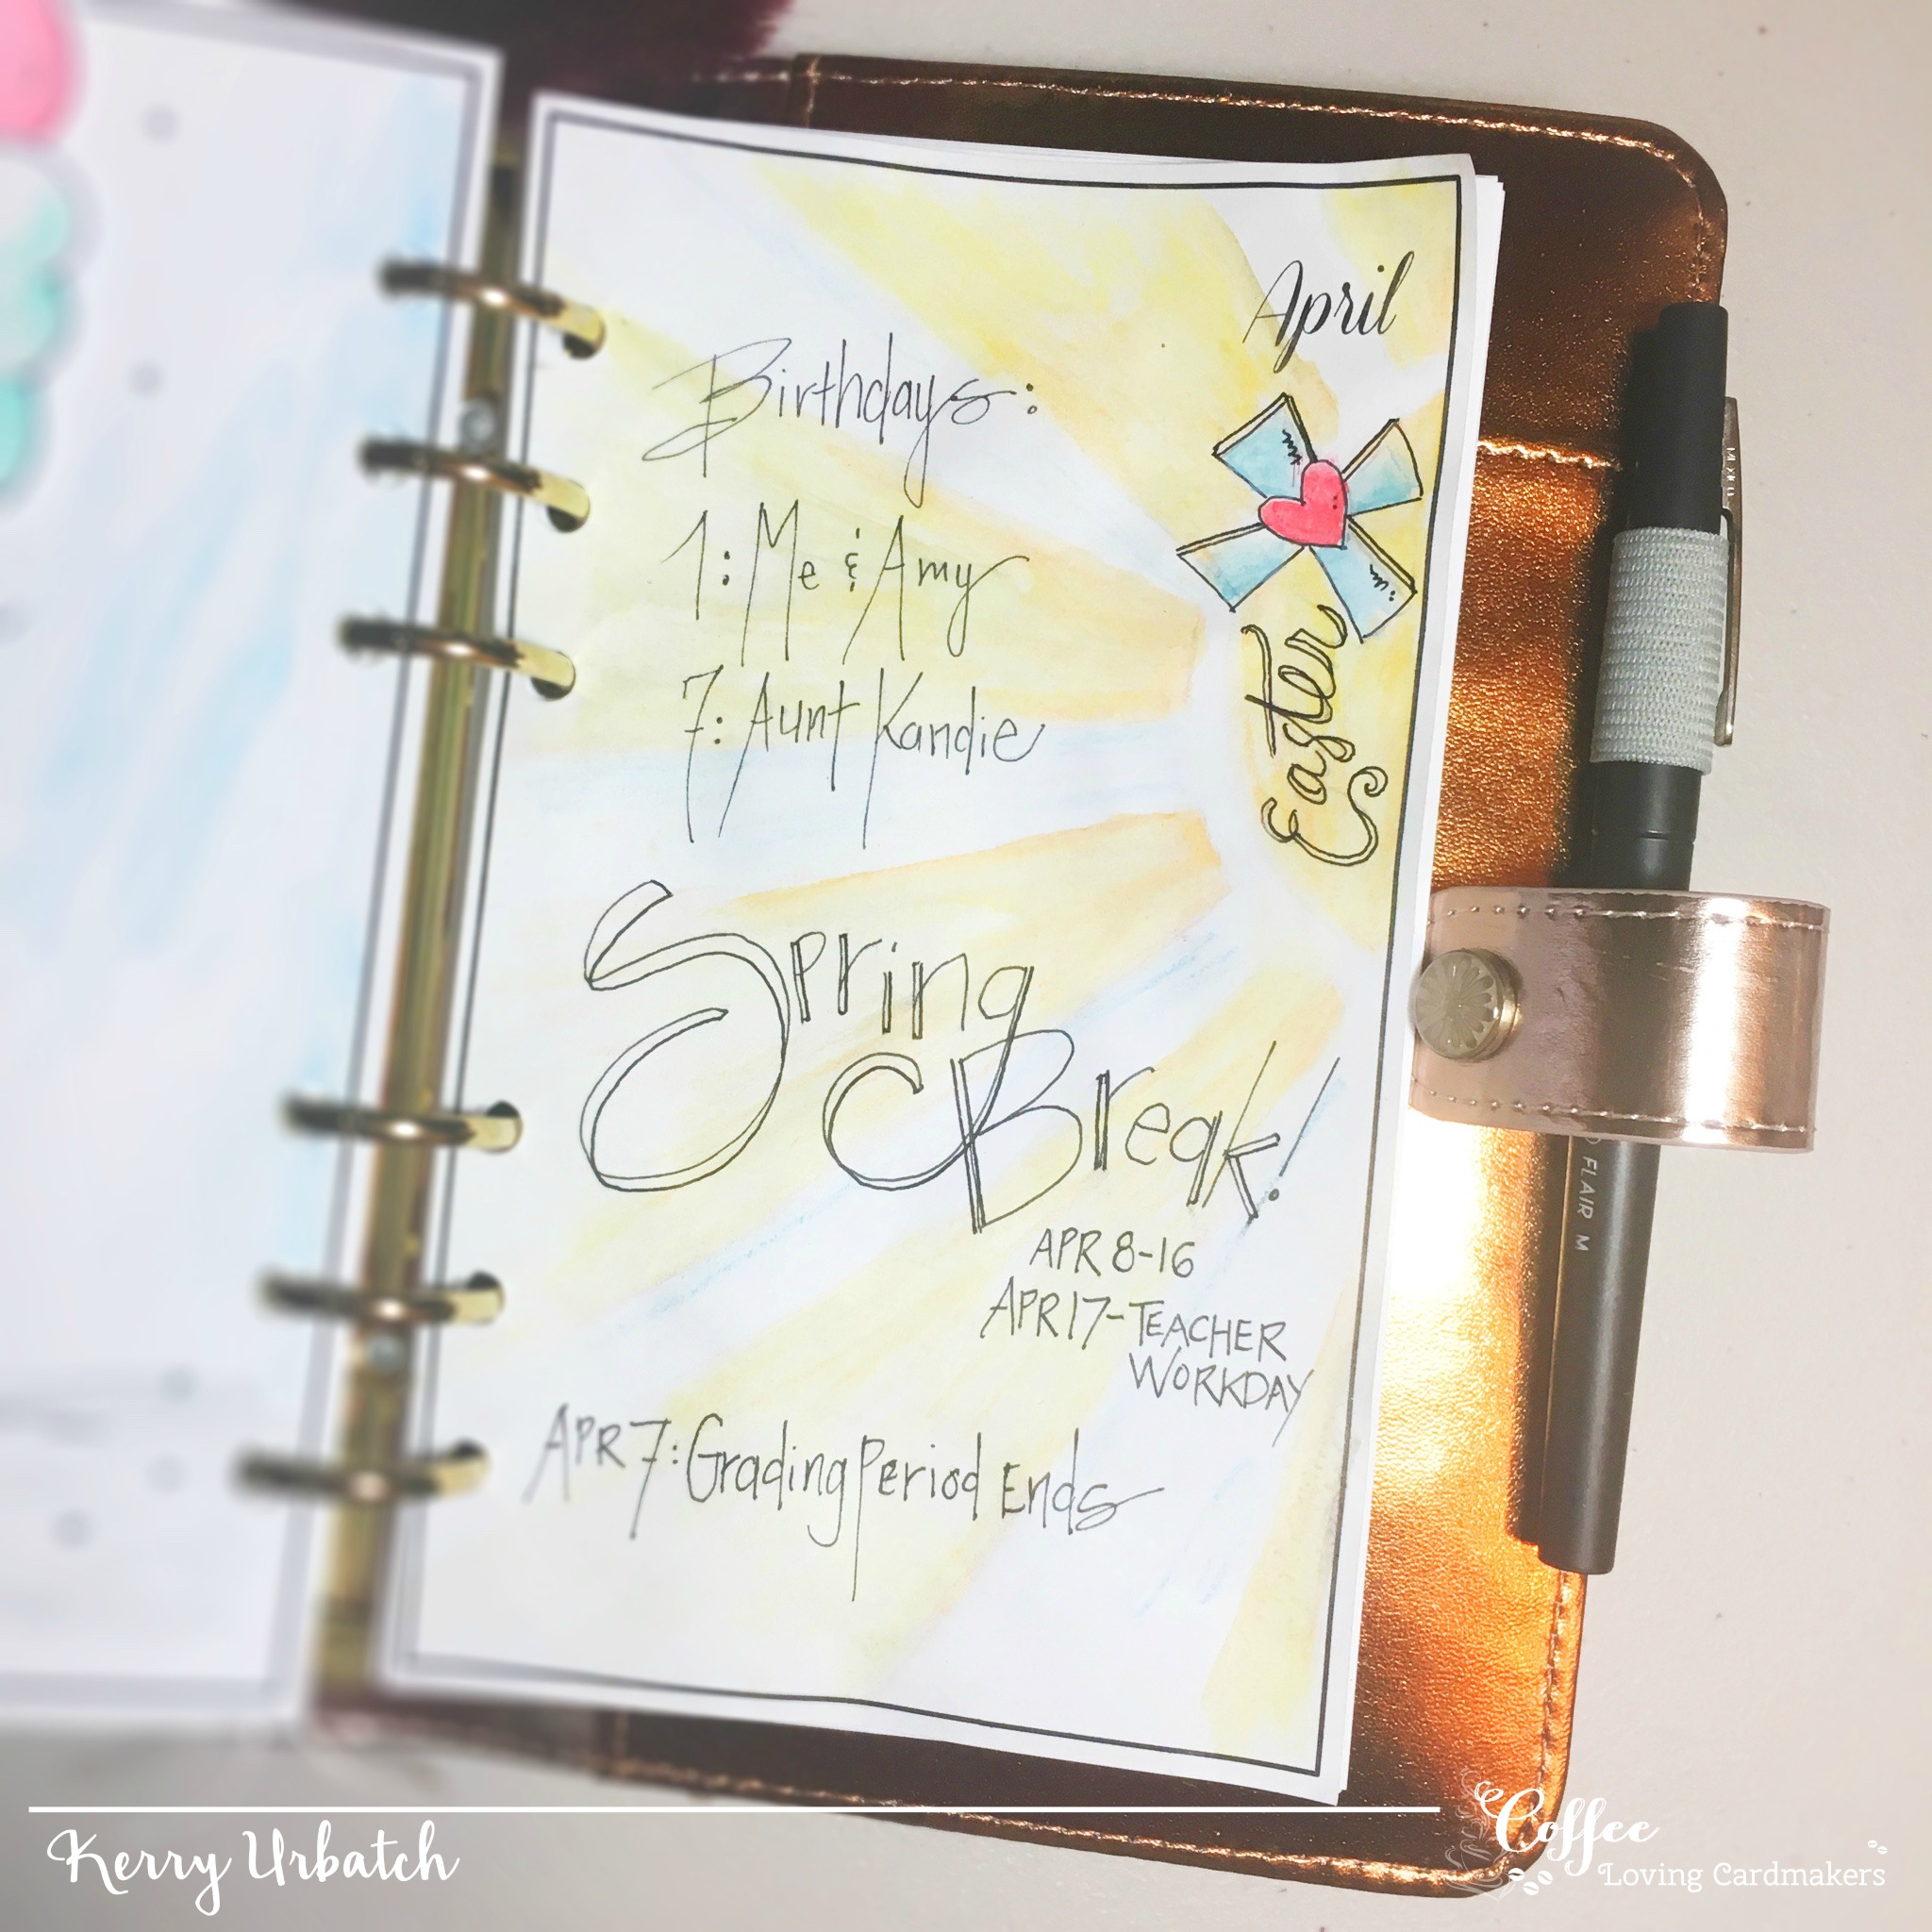 April
Birthdays:
1: Me & Amy
7: Aunt Kandie
Easter
Spring
Break!
APR 8-16
APR 17-TEACHER
WORKDAY
APR 7: Grading Period Ends
FLAIR M
Kerry Urbatch
Coffee
Loving Cardmakers